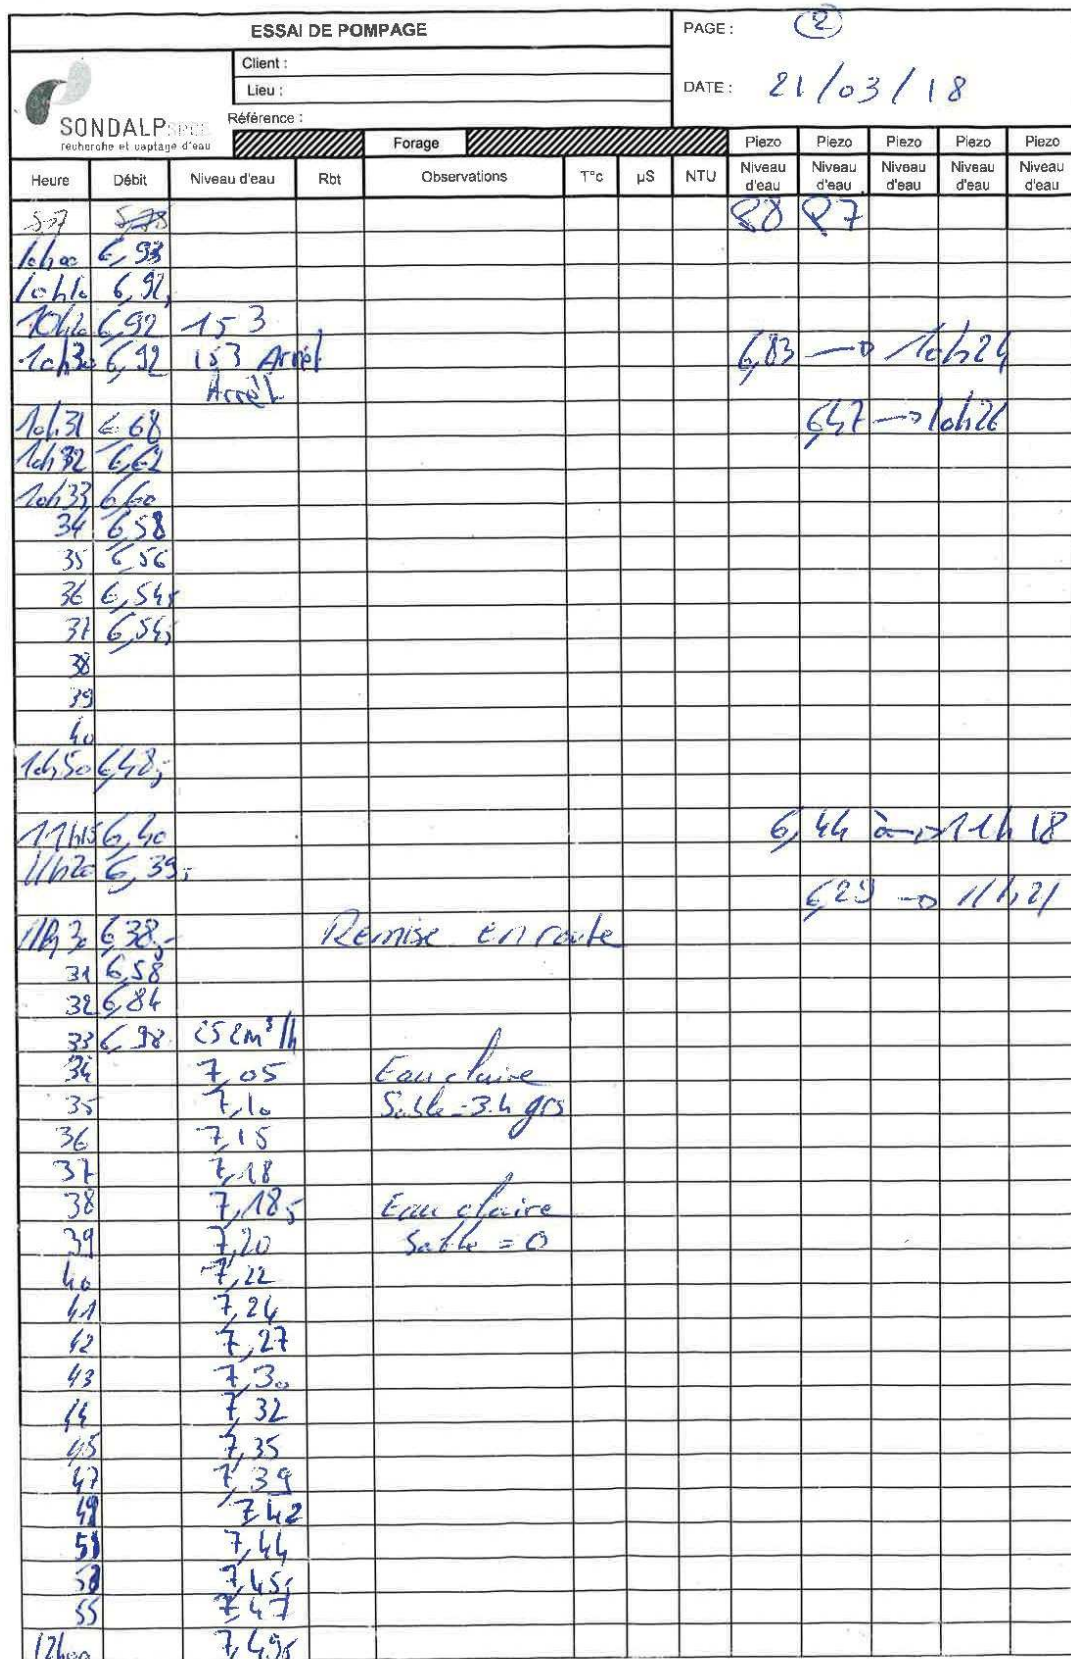 ESSAI DE POMPAGE
PAGE : 2
Client :
Lieu :
DATE : 21/03/18
Référence :
SONDALP
recherche et captage d'eau
Forage Piezo Piezo Piezo Piezo Piezo
Heure Débit Niveau d'eau Rbt Observations T°c µS NTU Niveau d'eau Niveau d'eau Niveau d'eau Niveau d'eau Niveau d'eau
P8 P7
10h00 6,93
10h10 6,92
10h20 6,92 153
10h30 6,92 153 Arrêt 6,83 → 10h24
Arrêt
10h31 6,68 6,47 → 10h26
10h32 6,62
10h33 6,60
34 6,58
35 6,56
36 6,545
37 6,545
38
39
40
10h50 6,485
11h15 6,40 6,44 à → 11h18
11h20 6,395
6,29 → 11h21
11h30 6,385 Remise en route
31 6,58
32 6,84
33 6,98 252m³/h
34 7,05 Eau claire
35 7,10 Sable = 3.4 grs
36 7,15
37 7,18
38 7,185 Eau claire
39 7,20 Sable = 0
40 7,22
41 7,24
42 7,27
43 7,30
44 7,32
45 7,35
47 7,39
49 7,42
51 7,44
53 7,455
55 7,47
12h00 7,495